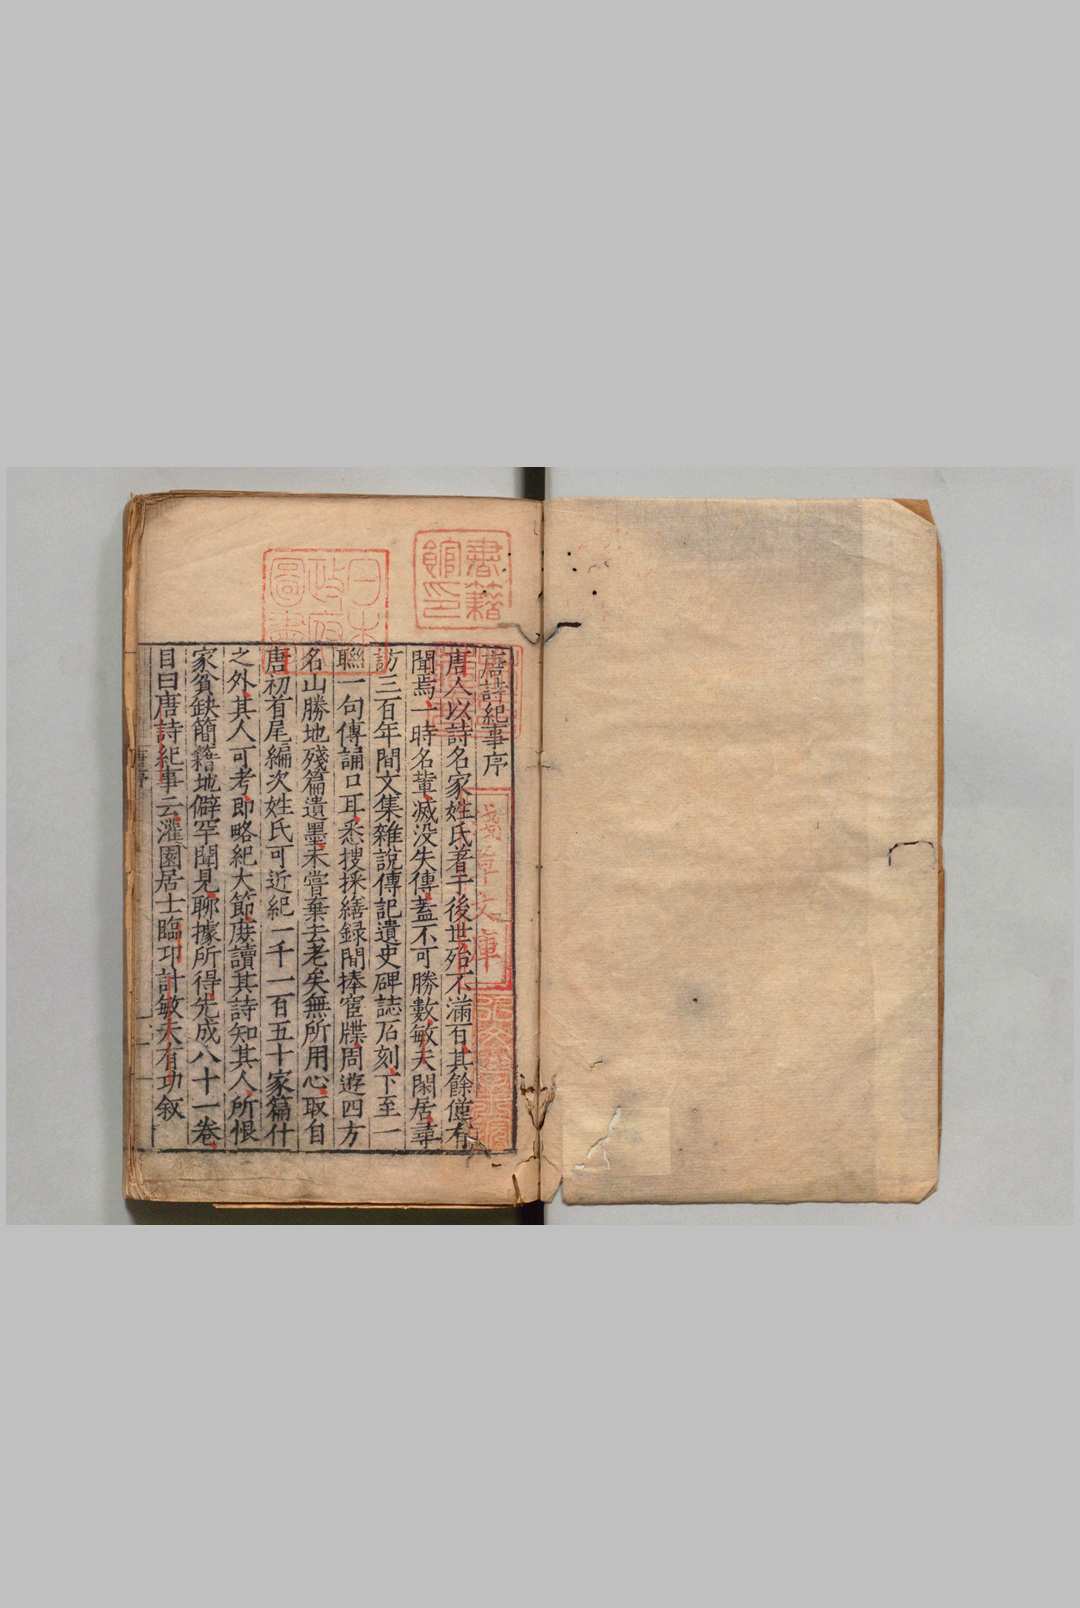 唐詩紀事序
唐人以詩名家姓氏著于後世殆不滿百其餘僅有
聞焉一時名輩滅没失傳蓋不可勝數敏夫閑居尋
訪三百年間文集雜說傳記遺史碑誌石刻下至一
聯一句傳誦口耳悉搜採繕録間捧宦牒周遊四方
名山勝地殘篇遺墨未嘗棄去老矣無所用心取自
唐初首尾編次姓氏可近紀一千一百五十家篇什
之外其人可考即略紀大節庶讀其詩知其人所恨
家貧缺簡籍地僻罕聞見聊據所得先成八十一卷
目曰唐詩紀事云灌園居士臨卭計敏夫有功叙
書籍
館印
日本
政府
圖書
淺草文庫